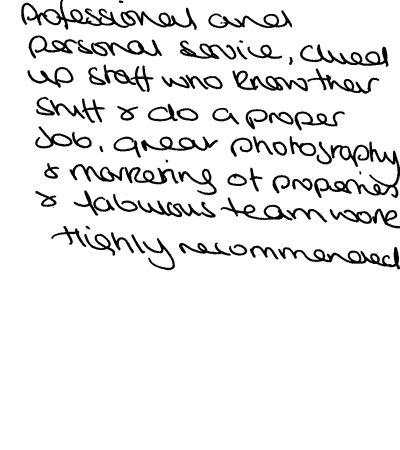 Professional and
personal service, clued
up staff who know their
stuff & do a proper
job, great photography
& marketing of properties
& fabulous teamwork
Highly recommended